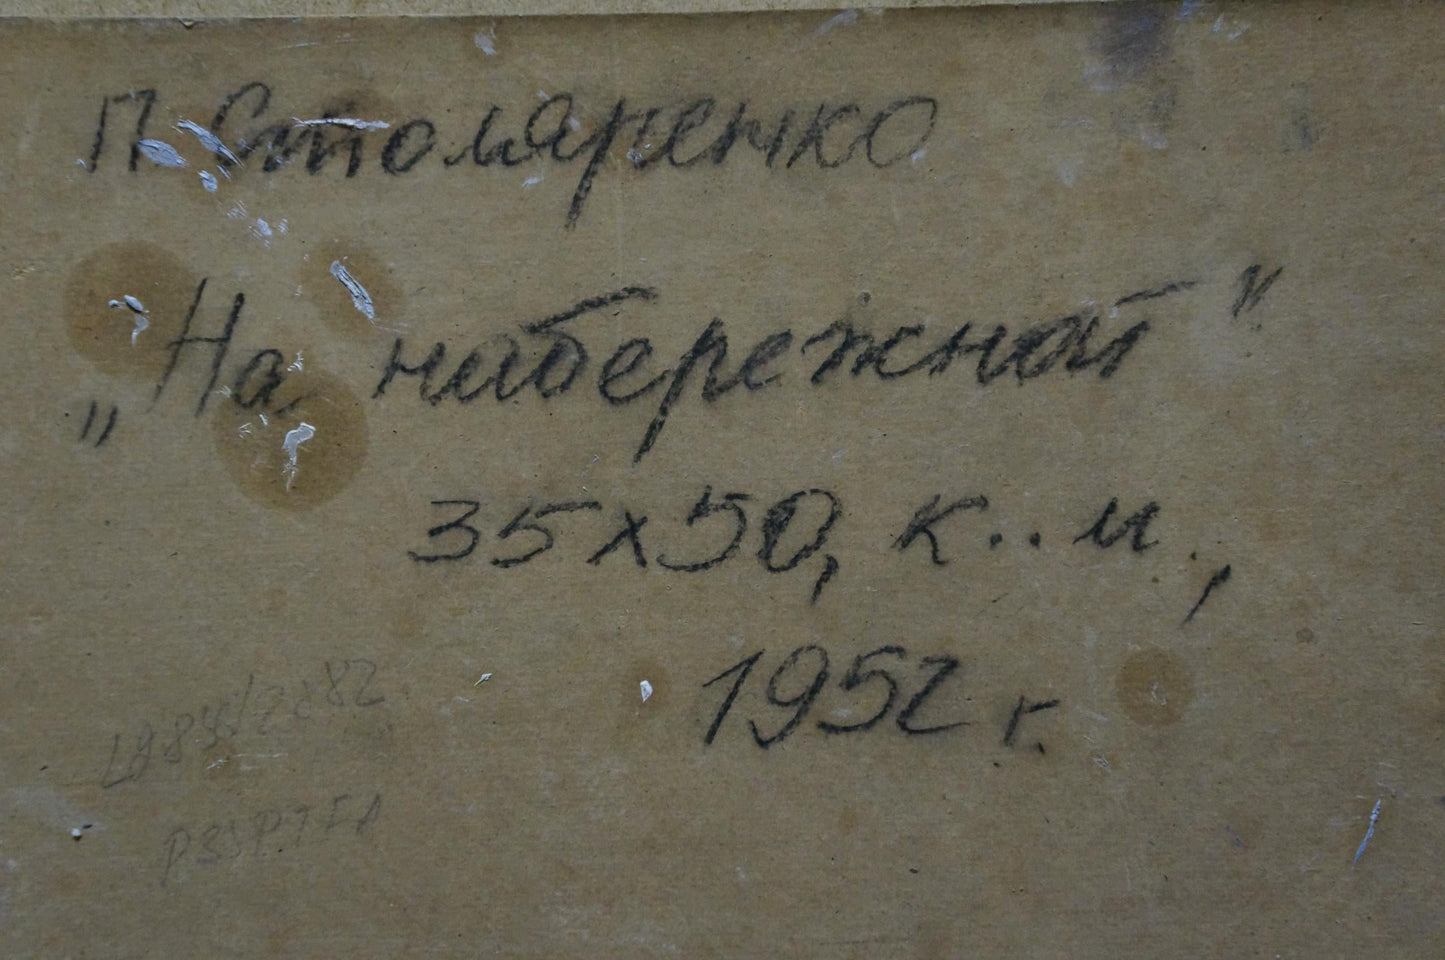 П. Столяренко
„На набережной"
35х50, к..м.,
1952 г.